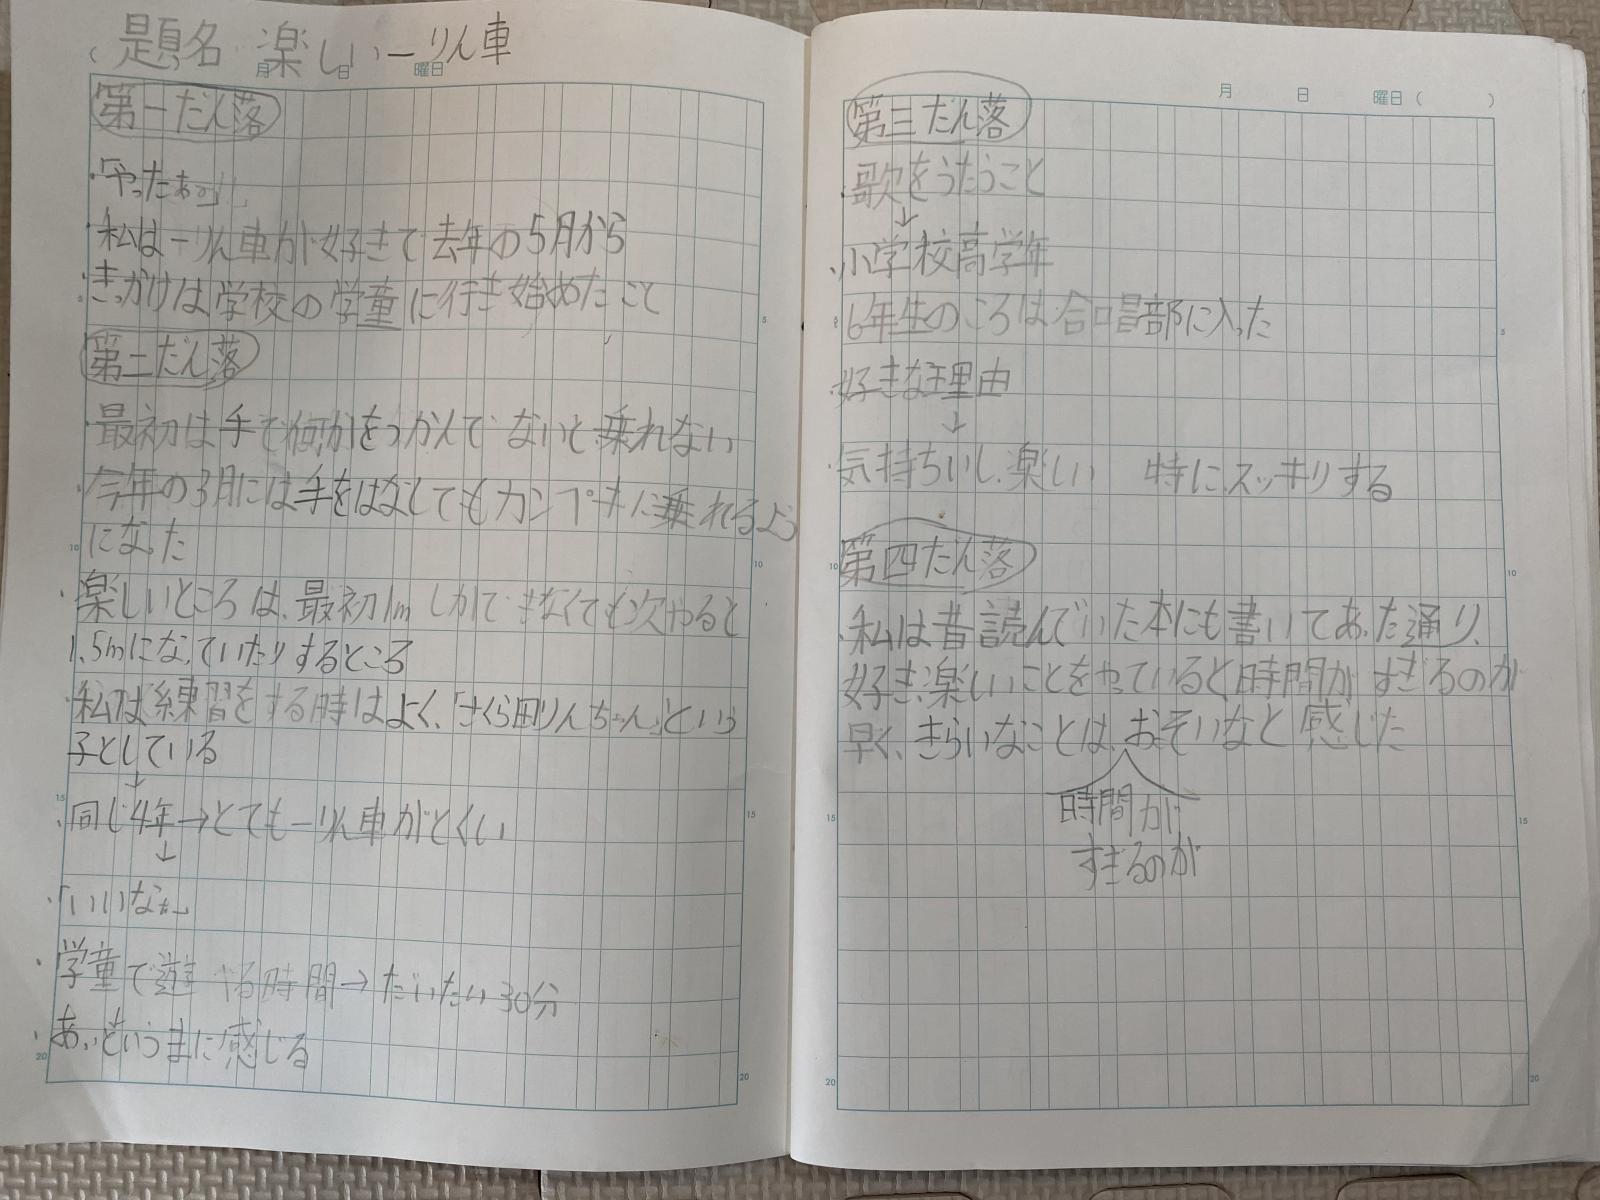 題名 楽しい一りん車
月 日 曜日
第一だん落
・「やったあっ!!」
・私は一りん車が好きで去年の5月から
・きっかけは学校の学童に行き始めたこと
第二だん落
・最初は手で何かをつかんでないと乗れない
・今年の3月には手をはなしてもカンペキに乗れるよう
になった
・楽しいところは、最初1mしかできなくても次やると
1.5mになっていたりするところ
・私は練習をする時はよく、「さくら田りんちゃん」という
子としている
↓
・同じ4年→とても一りん車がとくい
↓
・「いいなあ」
・学童で遊べる時間→だいたい30分
・あっというまに感じる
5
10
15
20
5
10
15
20
月 日 曜日( )
第三だん落
・歌をうたうこと
↓
・小学校高学年
・6年生のころは合唱部に入った
・好きな理由
↓
・気持ちいいし、楽しい 特にスッキリする
第四だん落
・私は昔読んでいた本にも書いてあった通り、
好き、楽しいことをやっていると時間がすぎるのが
早く、きらいなことは、おそいなと感じた
時間が
すぎるのが
5
10
15
20
5
10
15
20